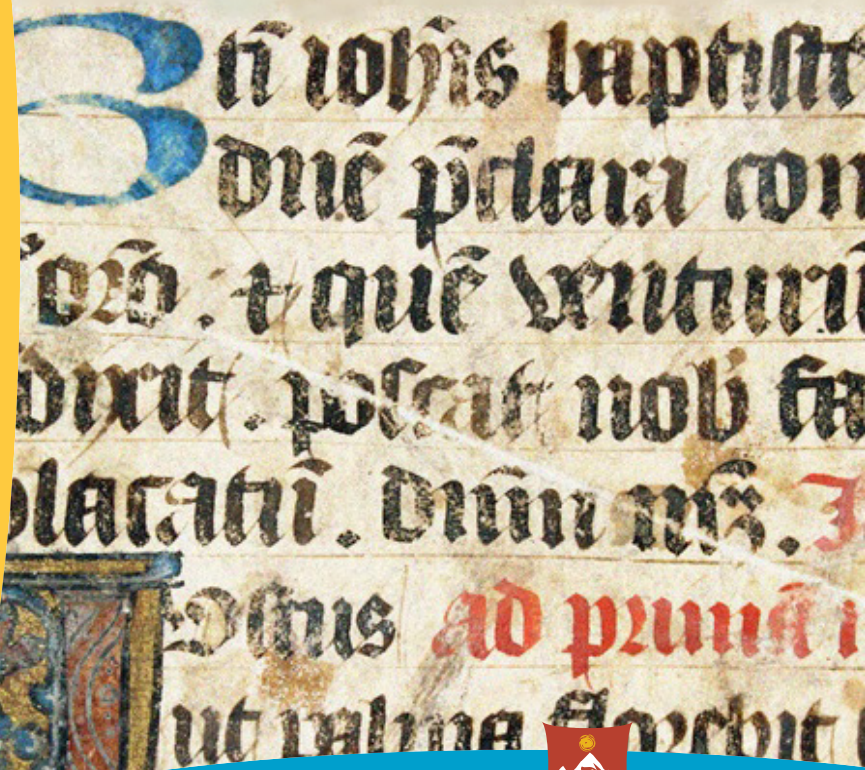 Stī ioh̄is baptiste
dnē p̄clara con
oro̅ . ⁊ quē venturū
dixit . poscat nob̄ fa
placatū . dnm̄ nr̄m .
ustus ad primā
ut palma florebit